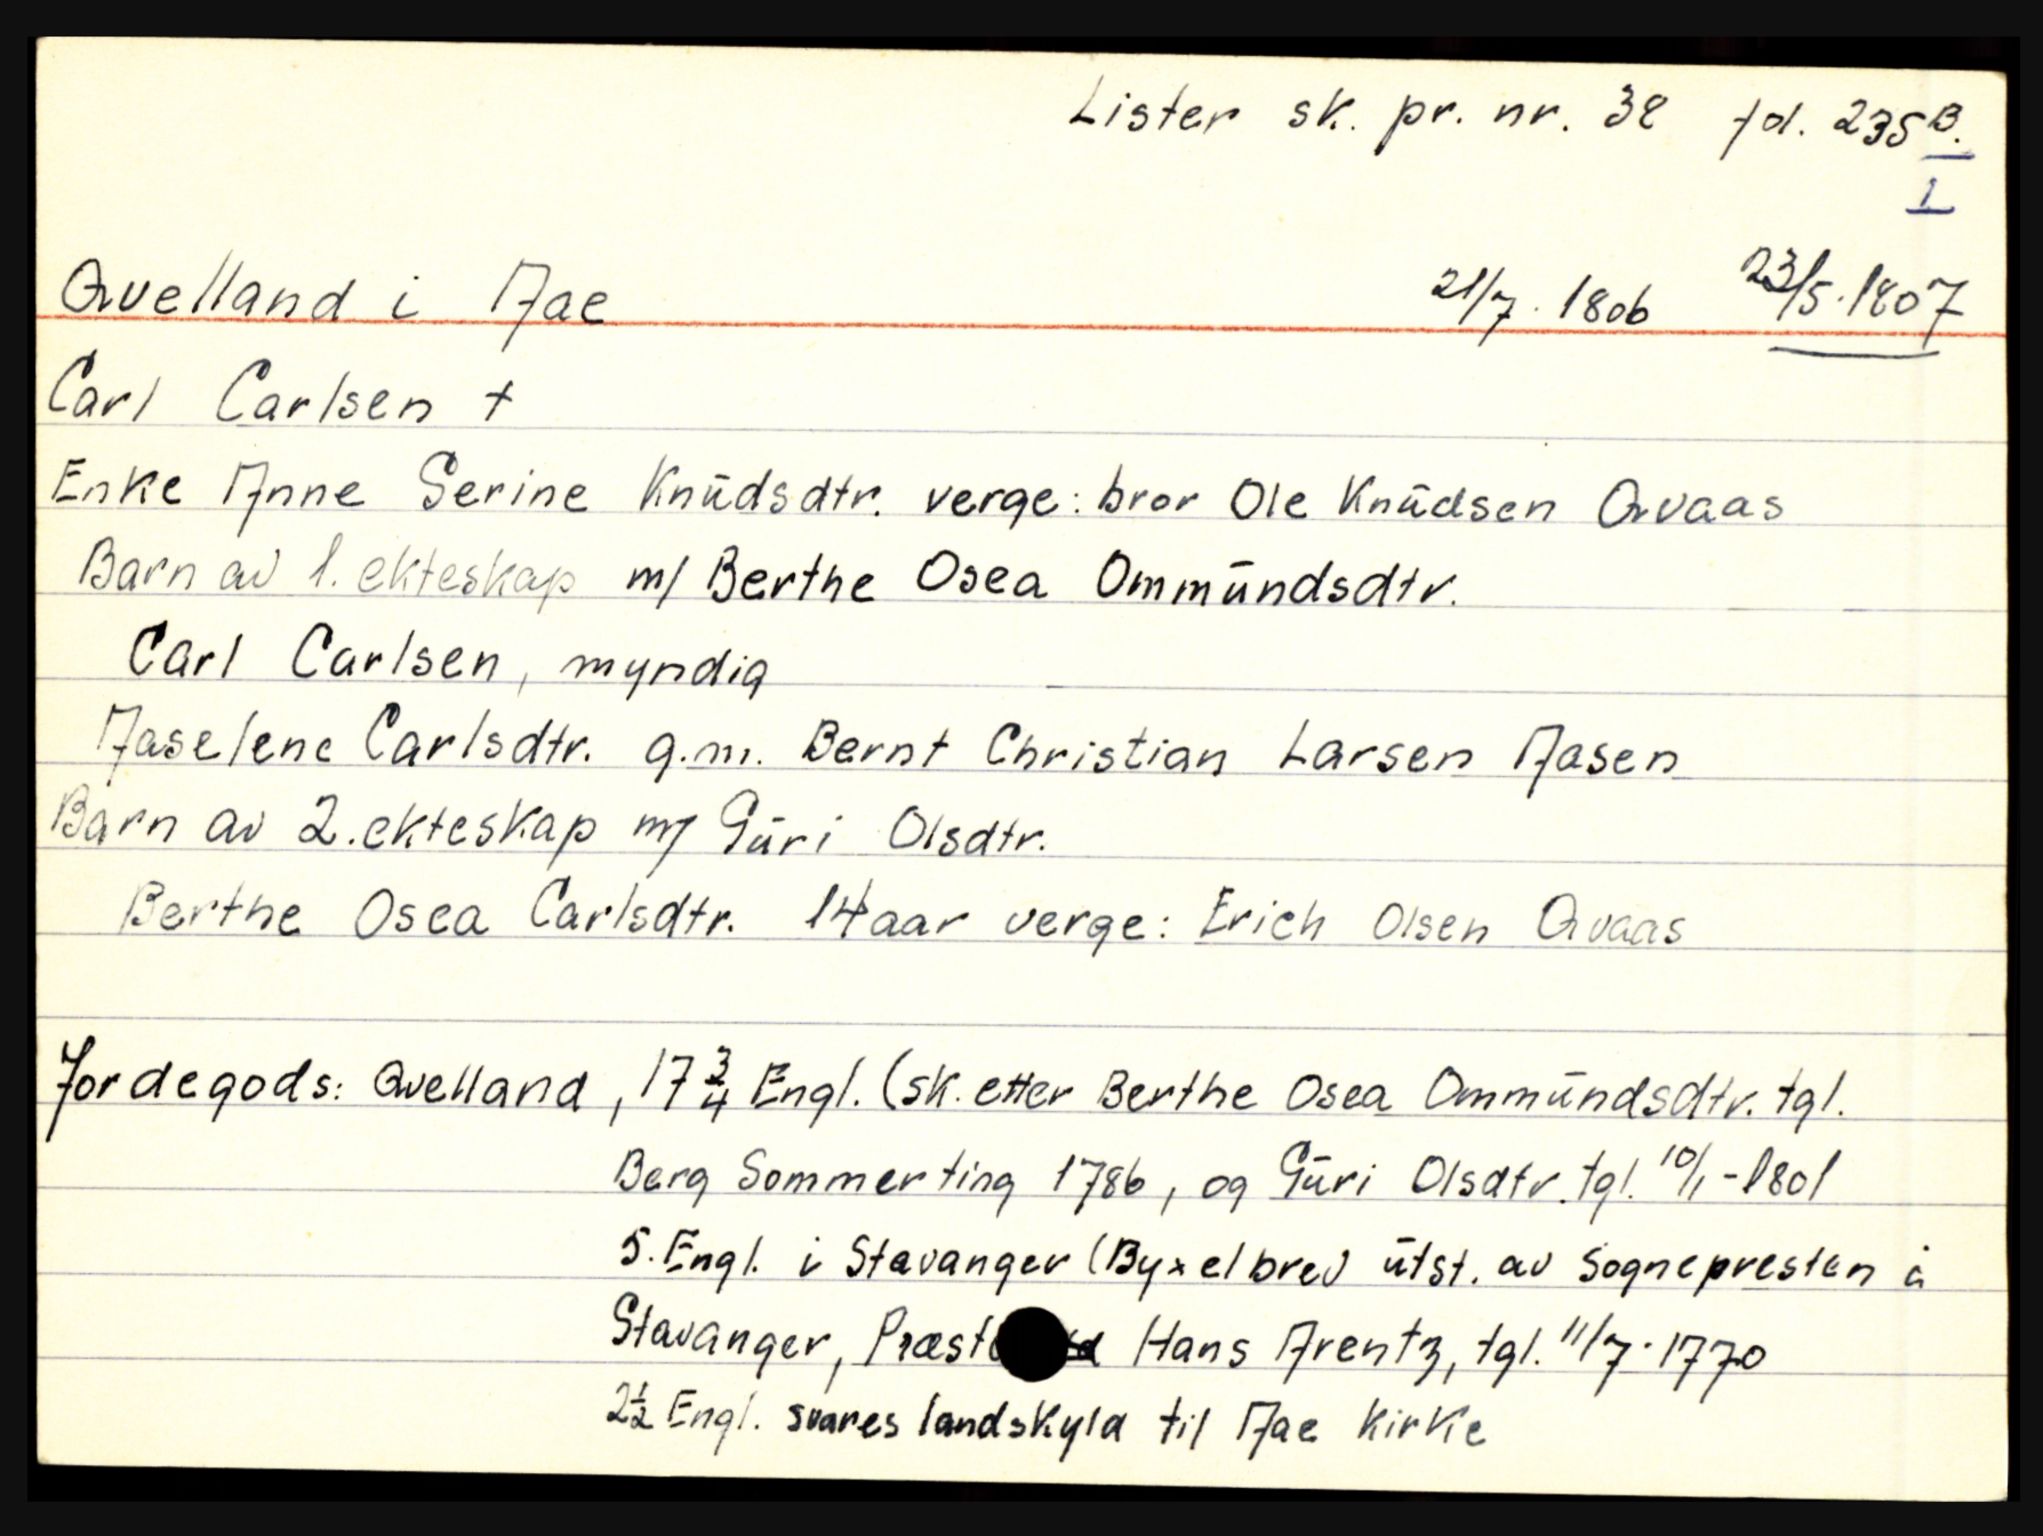 Lister sk. pr. nr. 38 fol. 235 B.
1
Qvelland i Aae 21/7. 1806 23/5. 1807
Carl Carlsen †
Enke Anne Serine Knüdsdtr. verge: bror Ole Knüdsen Qvaas
Barn av 1. ekteskap m/ Berthe Osea Ommündsdtr.
Carl Carlsen, myndig
Aaselene Carlsdtr. g.m. Bernt Christian Larsen Aasen
Barn av 2. ekteskap m/ Güri Olsdtr.
Berthe Osea Carlsdtr. 14 aar verge: Erich Olsen Qvaas
Jordegods: Qvelland, 17 3/4 Engl. (sk. etter Berthe Osea Ommündsdtr. tgl.
Berg Sommerting 1786, og Güri Olsdtr. tgl. 10/1 - 1801
5. Engl. i Stavanger (Byxelbrev ütst. av Sognepresten i
Stavanger, Hans Arentz, tgl. 11/7. 1770
2 1/2 Engl. svares landskyld til Aae Kirke